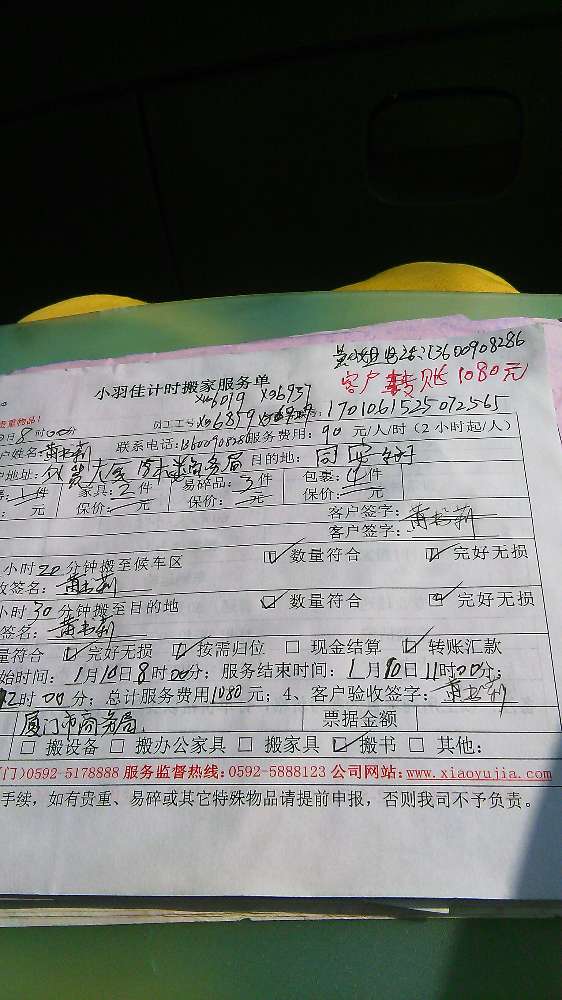 电话:13600908286
小羽佳计时搬家服务单
客户转账1080元
X96019 X96937
贵重物品!
员工工号 X96859 1701061525072565
日8时00分
户姓名: 联系电话:13600908286服务费用:90 元/人/时(2小时起/人)
户地址: 商务局 目的地:同安
件 家具:2件 易碎品:3件 包裹:4件
元 保价: 元 保价: 元 保价: 元
客户签字:
客户签字:
小时20分钟搬至候车区 ☑ 数量符合 ☑ 完好无损
收签名:
小时30分钟搬至目的地 ☑ 数量符合 ☑ 完好无损
签名:
量符合 ☑ 完好无损 ☑ 按需归位 □ 现金结算 ☑ 转账汇款
始时间:1月10日8时00分; 服务结束时间:1月10日11时00分;
12时00分; 总计服务费用1080元; 4、客户验收签字:
厦门市商务局 票据金额
□ 搬设备 □ 搬办公家具 □ 搬家具 ☑ 搬书 □ 其他:
门)0592-5178888 服务监督热线:0592-5888123 公司网站:www.xiaoyujia.com
手续,如有贵重、易碎或其它特殊物品请提前申报,否则我司不予负责。